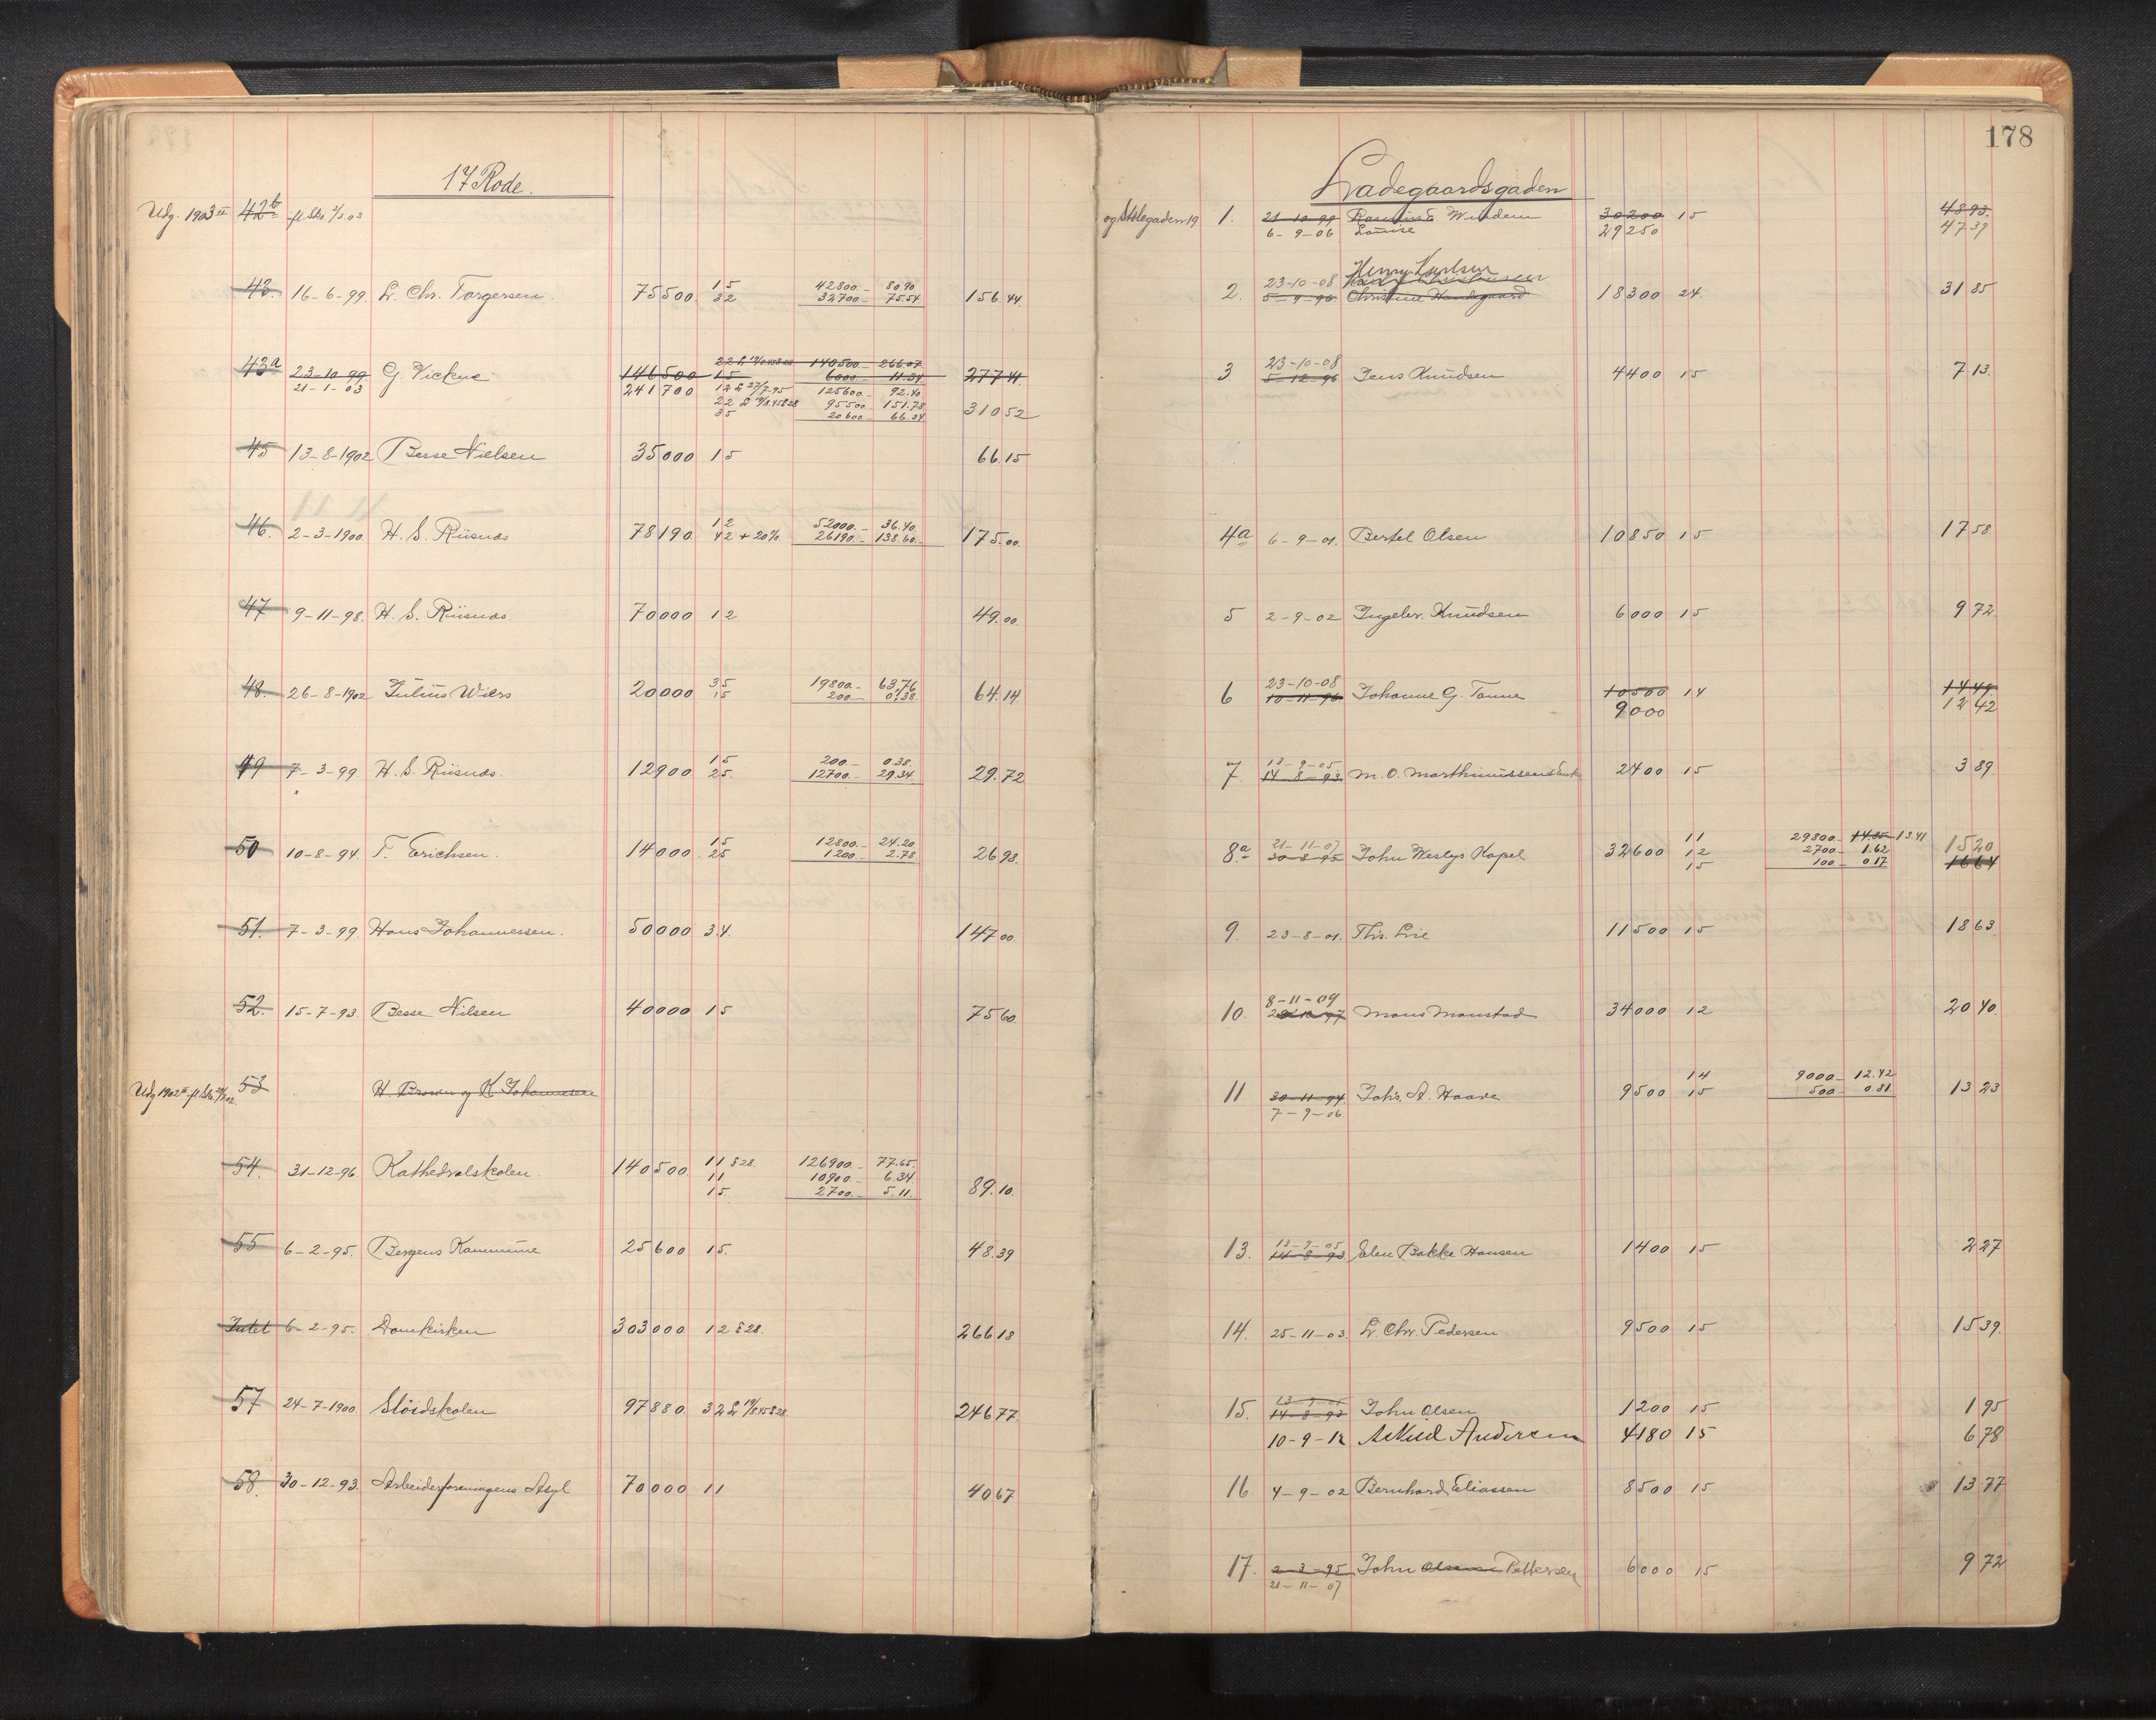 17 Rode.
Udg. 1903 42b fl. Sks. 2/3.03
43. 16-6-99. L. Chr. Torgersen 75500 15 42800.- 80.90
32 32700.- 75.54 156.44
43a 23-10-99 G. Vickne 146500 22 140500.- 266.07
15 6000.- 11.34 277.41
21-1-03 241700 12 125600.- 92.40
22 95500.- 151.78
35 20600.- 66.34 310.52
45 13-8-1902 Besse Nielsen 35000 15 66.15
46. 2-3-1900. H. S. Riisnæs 78190 12 52000.- 36.40
42 + 20% 26190.- 138.60 175.00
47 9-11-98. H. S. Riisnæs. 70000 12 49.00
48. 26-8-1902 Julius Wiers 20000 35 19800.- 63.76
15 200.- 0.38 64.14
49 7-3-99. H. S. Riisnæs. 12900 15 200.- 0.38
25. 12700.- 29.34 29.72
50 10-8-94. T. Erichsen. 14000 15 12800.- 24.20
25 1200.- 2.78 26.98
51. 7-3-99. Hans Johannessen. 50000 34. 147.00
52. 15-7-93. Besse Nilsen 40000 15 75.60
Udg 1902 fl. Sks. 53 H. Brown og K. Johannessen
54. 31-12-96. Kathedralskolen. 140500. 11 § 28. 126900.- 77.65
11 10900.- 6.34
15. 2700.- 5.11 89.10
55 6-2-95. Bergens Kommune 25600 15. 48.39
Intet 6-2-95. Domkirken 303000 12 § 28. 266 18
57 24-7-1900. Sløidskolen 97880. 32 246 77
58. 30-12-93. Arbeiderforeningens Asyl 70000 11 40 67
178
Ladegaardsgaden
og Stølegaden 19 1. 21-10-99 Windem 30200 15 48 93
6-9-06 Louise 29250 47 39
Henry Knudsen
2. 23-10-08
5-9-96 Christine Handegaard 18300 24. 31 85
3 23-10-08
5-12-96 Jens Knudsen 4400 15 7 13.
4a 6-9-01. Bertel Olsen 10850 15 17 58.
5 2-9-02 Ingebr. Knudsen 6000 15 9 72.
6 23-10-08
10-11-96 Johanne G. Tanne 10500 14 14 49.
9000 12 42
7. 13-9-05
14-8-93 M. O. Marthinussens Enke 2400 15 3 89.
8a 21-11-07 11 29800- 14.85 13.41 15 20
30-8-95 John Weslys Kapel 32600 12 2700- 1.62
15 100- 0.17 16 64
9. 23-8-01. Ths. Lie 11500 15 18 63.
10. 8-11-09
Mons Monstad 34000 12 20 40.
11 30-11-94. Johs. A. Haave 9500 14 9000- 12.42
7-9-06 15 500- 0.81 13 23
13. 13-9-05
14-8-93 Elen Bakke Hansen 1400 15 2 27
14. 25-11-03. L. Chr. Pedersen 9500 15 15 39.
15. 13-9-05
14-8-93 John Olsen 1200 15 1 95
10-9-12 Askild Andersen 4180 15 6 78
16 4-9-02 Bernhard Eliassen 8500 15 13 77
17. 2-3-95 John Olsens Pettersen 6000 15 9 72
21-11-07